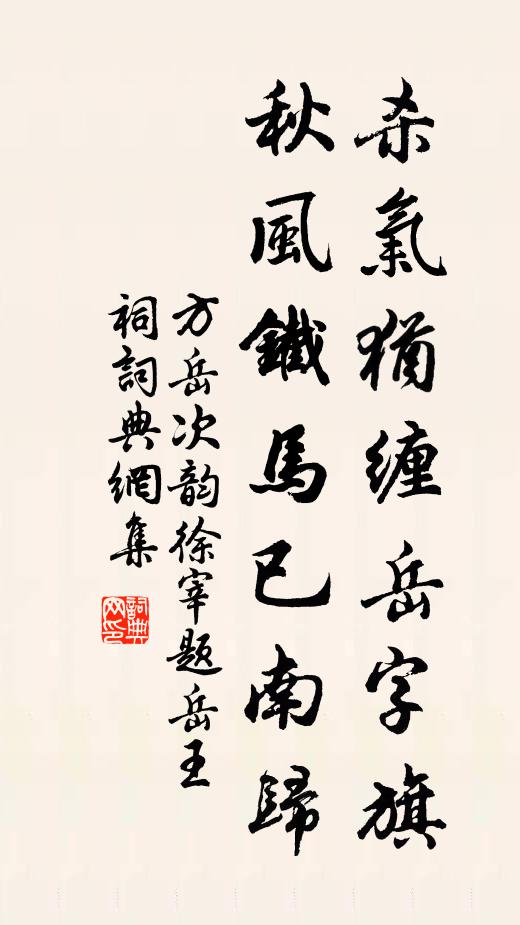 杀氣猶纏岳字旗
秋風鐵馬已南歸
方岳次韵徐宰題岳王
祠詞典網集
詞典网印